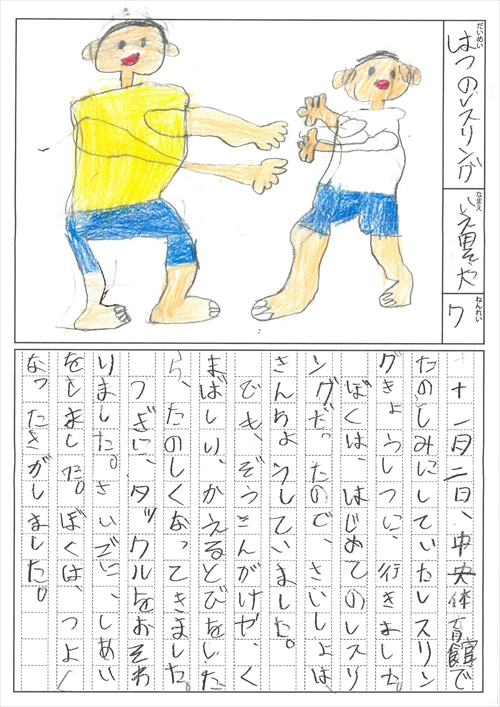 だいめい
はつのレスリング
なまえ
ねんれい
7
十一月二日、中央体育館で
たのしみにしていたレスリン
グきょうしつに、行きました。
ぼくは、はじめてのレスリ
ングだったので、さいしょは、
きんちょうしていました。
でも、ぞうきんがけや、く
まばしり、かえるとびをした
ら、たのしくなってきました。
つぎに、タックルをおそわ
りました。さいごに、しあい
をしました。ぼくは、つよく
なったきがしました。